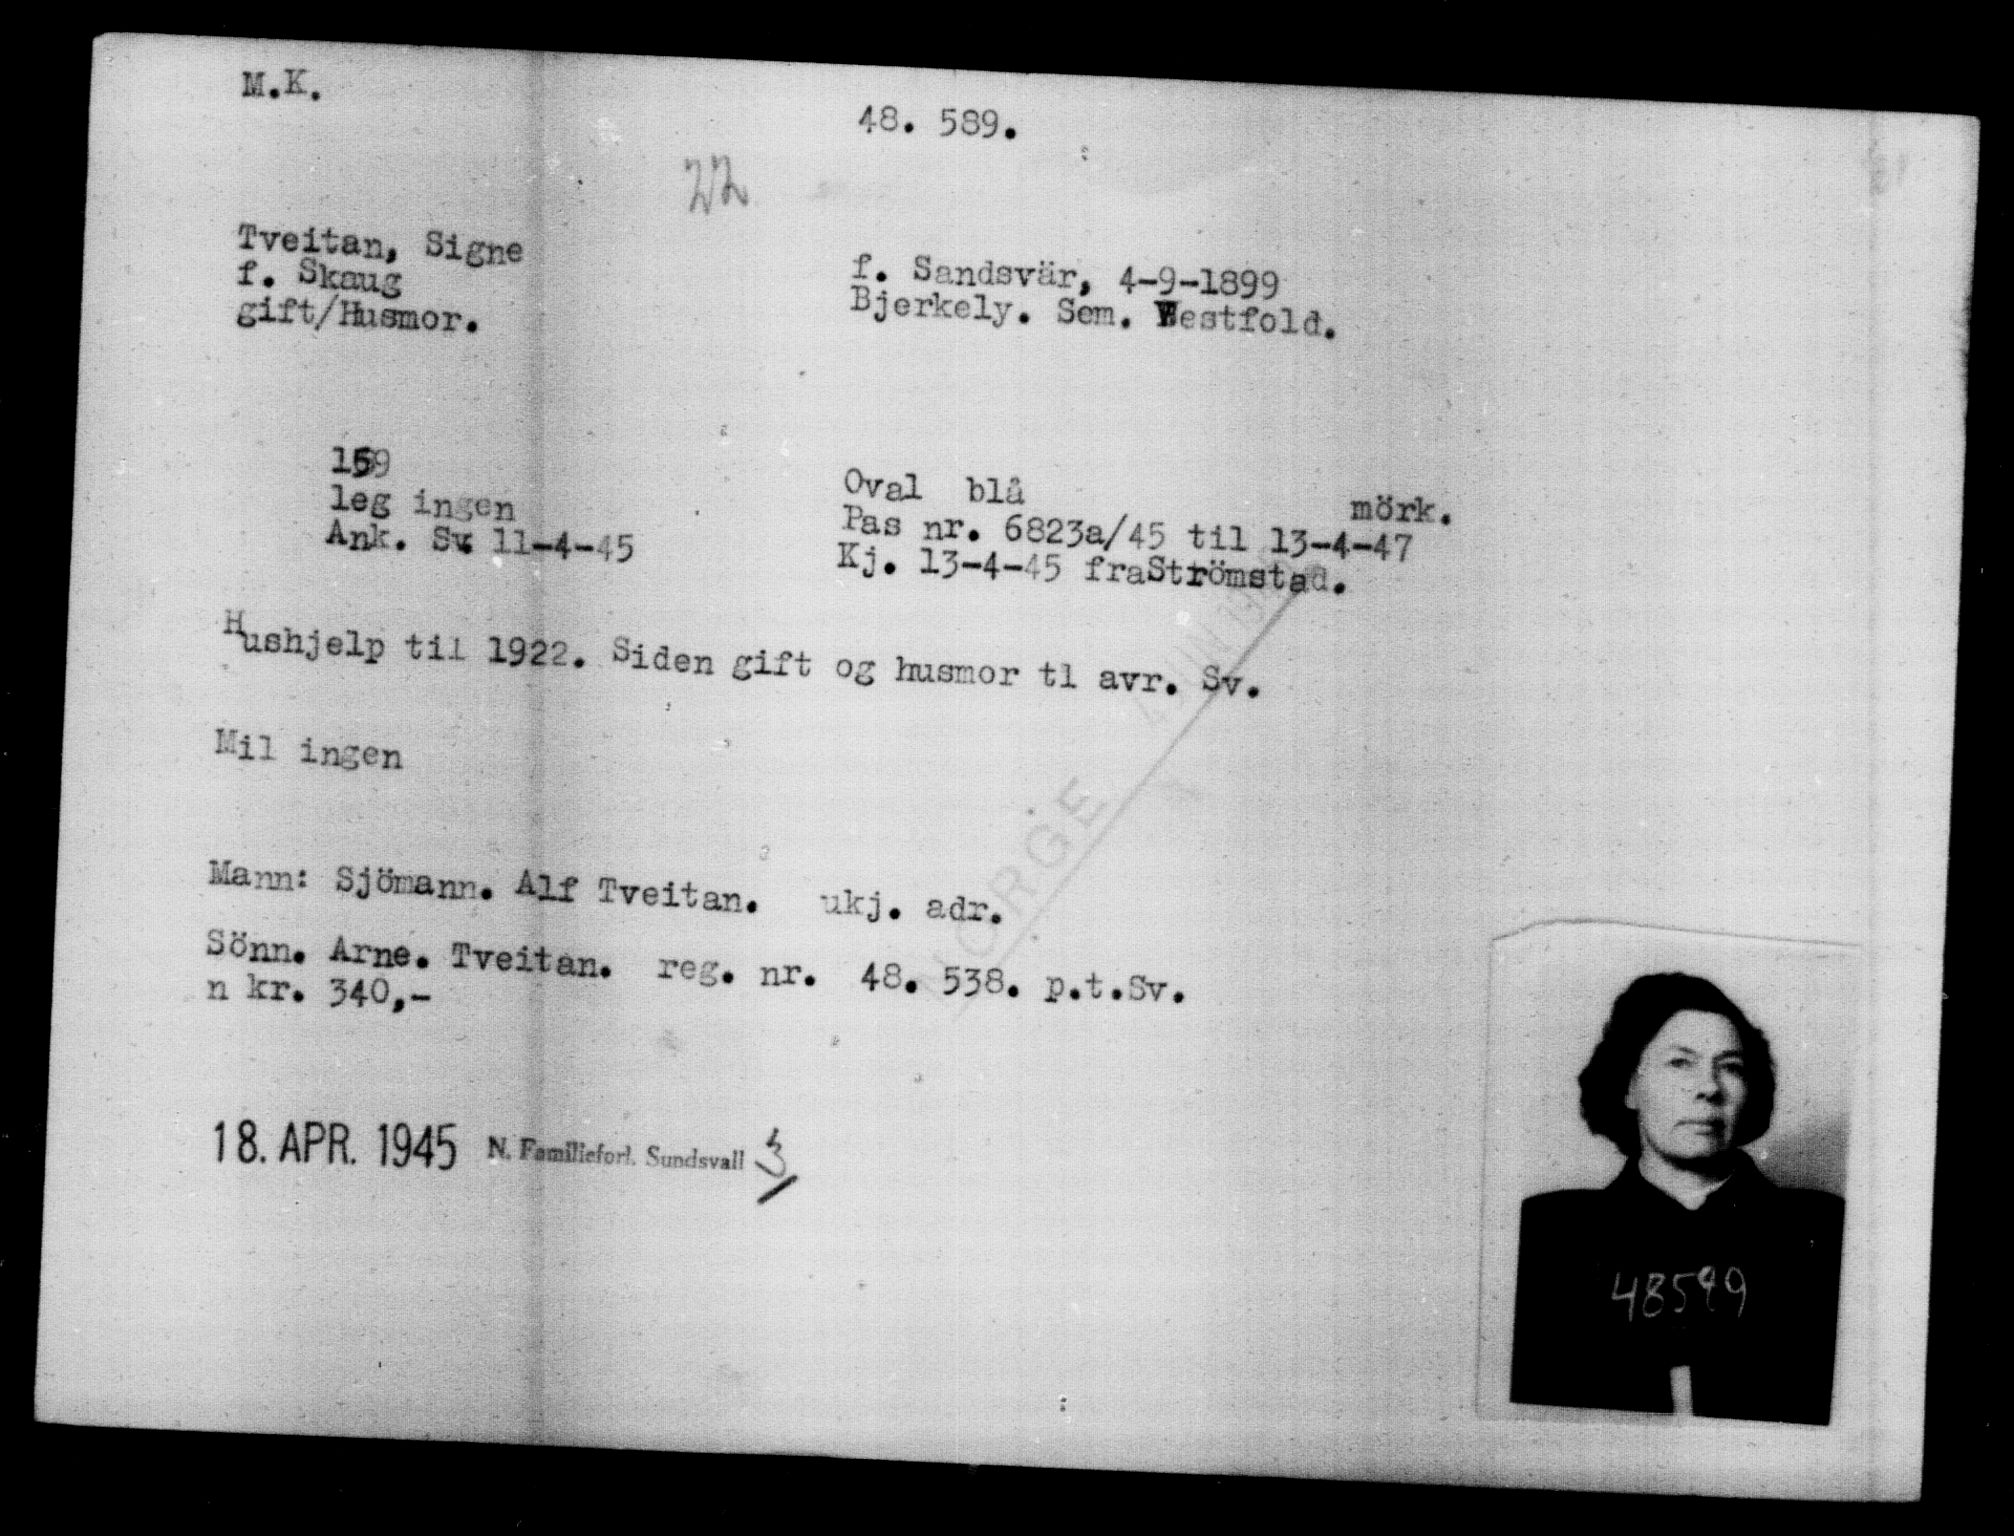 M.K.
48. 589.
22
Tveitan, Signe
f. Skaug
gift/Husmor.
f. Sandsvär, 4-9-1899
Bjerkely. Sem. Vestfold.
159
leg ingen
Ank. Sv 11-4-45
Oval blå mörk.
Pas nr. 6823a/45 til 13-4-47
Kj. 13-4-45 fraStrömstad.
Hushjelp til 1922. Siden gift og husmor tl avr. Sv.
Mil ingen
NORGE
Mann: Sjömann. Alf Tveitan. ukj. adr.
Sönn. Arne. Tveitan. reg. nr. 48. 538. p.t.Sv.
n kr. 340,-
18. APR. 1945 N. Familieforl. Sundsvall 3
48589